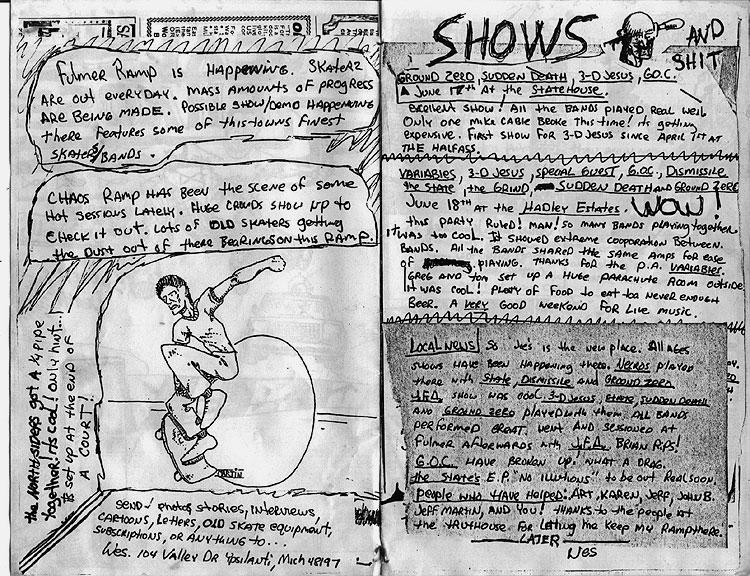 Fulmer Ramp is Happening. Skaterz
are out everyday. Mass amounts of progress
are being made. Possible show/demo happening
there features some of this towns finest
skaters/bands.
Chaos Ramp has been the scene of some
hot sessions lately. Huge crowds show up to
check it out. Lots of old skaters getting
the dust out of there bearings on this ramp.
the North-siders got a ¼ pipe
together. its cool! Only hint...
Its set up at the end of
a court!
Martin
Send photos, stories, interviews,
cartoons, letters, old skate equipment,
subscriptions, or anything to...
Wes. 104 Valley Dr Ypsilanti, Mich 48197
SHOWS AND
SHIT
Ground Zero, Sudden Death, 3-D Jesus, G.O.C.
June 17th at the Statehouse.
Excellent show! All the bands played real well
Only one mike cable broke this time! its getting
expensive. First show for 3-D Jesus since April 1st at
the Halfass.
Variables, 3-D Jesus, Special Guest, G.O.C., Dismissile
the State, the Grind, Sudden Death and Ground Zero
June 18th at the Hadley Estates. WOW!
this party ruled! Man! So many bands playing together
it was too cool. It showed extreme cooporation between
bands. All the bands shared the same amps for ease
of playing. Thanks for the P.A. Variables.
Greg and Tom set up a huge parachute room outside
It was cool! Plenty of food to eat too never enough
beer. A very good weekend for live music.
Local News! So Joe's is the new place. All ages
shows have been happening there. Necros played
there with State, Dismissile and Ground Zero
J.F.A. show was cool. 3-D Jesus, State, Sudden Death
and Ground Zero played with them. All bands
performed great. Went and sessioned at
Fulmer afterwards with J.F.A. Brian rips!
G.O.C. have broken up! What a drag.
the State's E.P. "No Illutions" to be out real soon.
People who have helped: Art, Karen, Jeff, John B.
Jeff, Martin, and you! Thanks to the people at
the Truthouse for letting me keep my ramp there.
Later
Wes